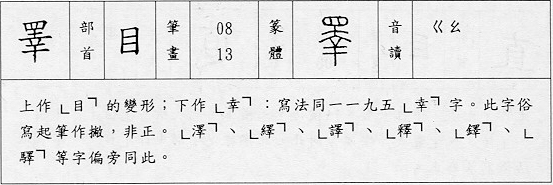 睪 部首 目 筆畫 08 13 篆體 睪 音讀 ㄍㄠ
上作└目┐的變形;下作└幸┐:寫法同一一九五└幸┐字。此字俗
寫起筆作撇,非正。└澤┐、└繹┐、└譯┐、└釋┐、└鐸┐、└
驛┐等字偏旁同此。